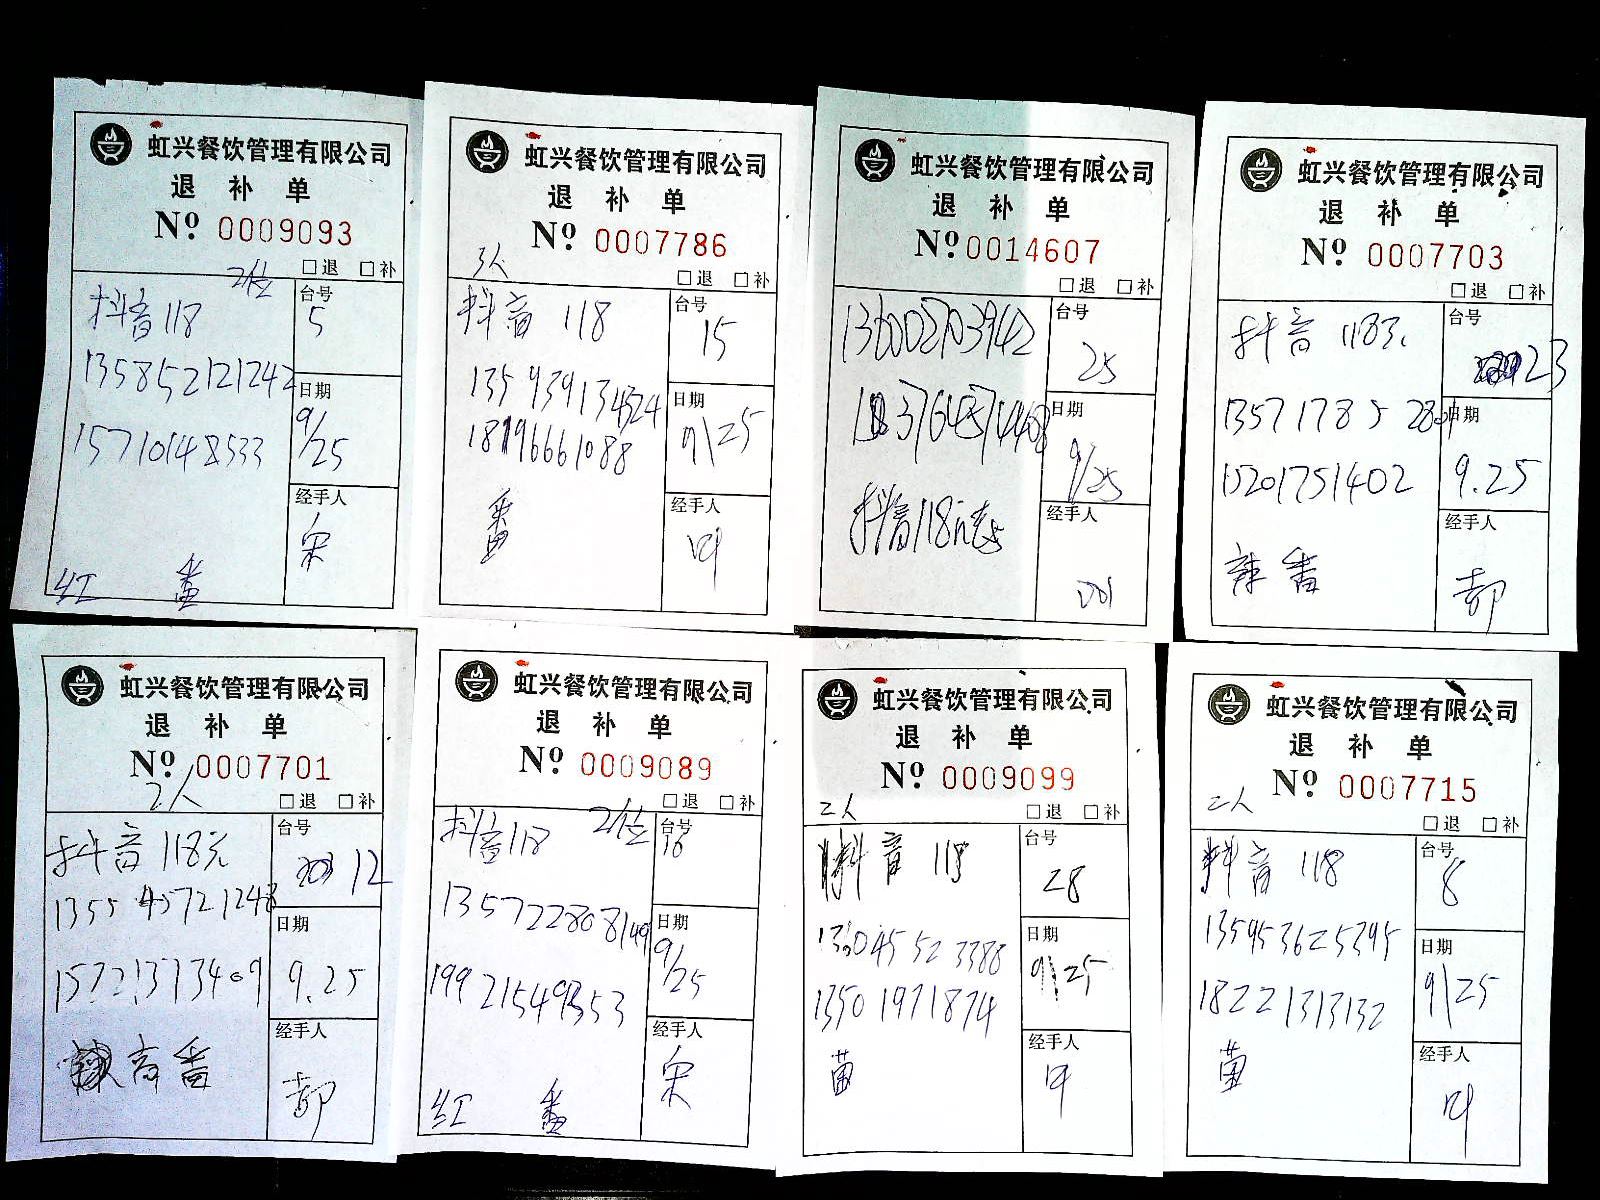 虹兴餐饮管理有限公司
退补单
№ 0009093
2位
□退 □补
抖音118
台号
5
135852121242
日期
9/25
15710148533
经手人
宋
红 番
虹兴餐饮管理有限公司
退补单
№ 0007786
3人
□退 □补
抖音 118
台号
15
日期
9\25
18196661088
番
经手人
叶
虹兴餐饮管理有限公司
退补单
№ 0014607
□退 □补
13600703942
台号
25
日期
9/25
抖音118元
经手人
虹兴餐饮管理有限公司
退补单
№ 0007703
□退 □补
抖音 118元
台号
23
日期
9.25
15201751402
经手人
郝
辣 番
虹兴餐饮管理有限公司
退补单
№ 0007701
2人
□退 □补
抖音118元
台号
12
日期
9.25
15721373409
经手人
郝
番
虹兴餐饮管理有限公司
退补单
№ 0009089
□退 □补
抖音118 2位
台号
16
135722808149
日期
9/25
经手人
宋
红 番
虹兴餐饮管理有限公司
退补单
№ 0009099
二人
□退 □补
抖音 118
台号
28
日期
9\25
13501971874
菌
经手人
叶
虹兴餐饮管理有限公司
退补单
№ 0007715
二人
□退 □补
抖音 118
台号
8
135953625395
日期
9\25
18221313132
菌
经手人
叶